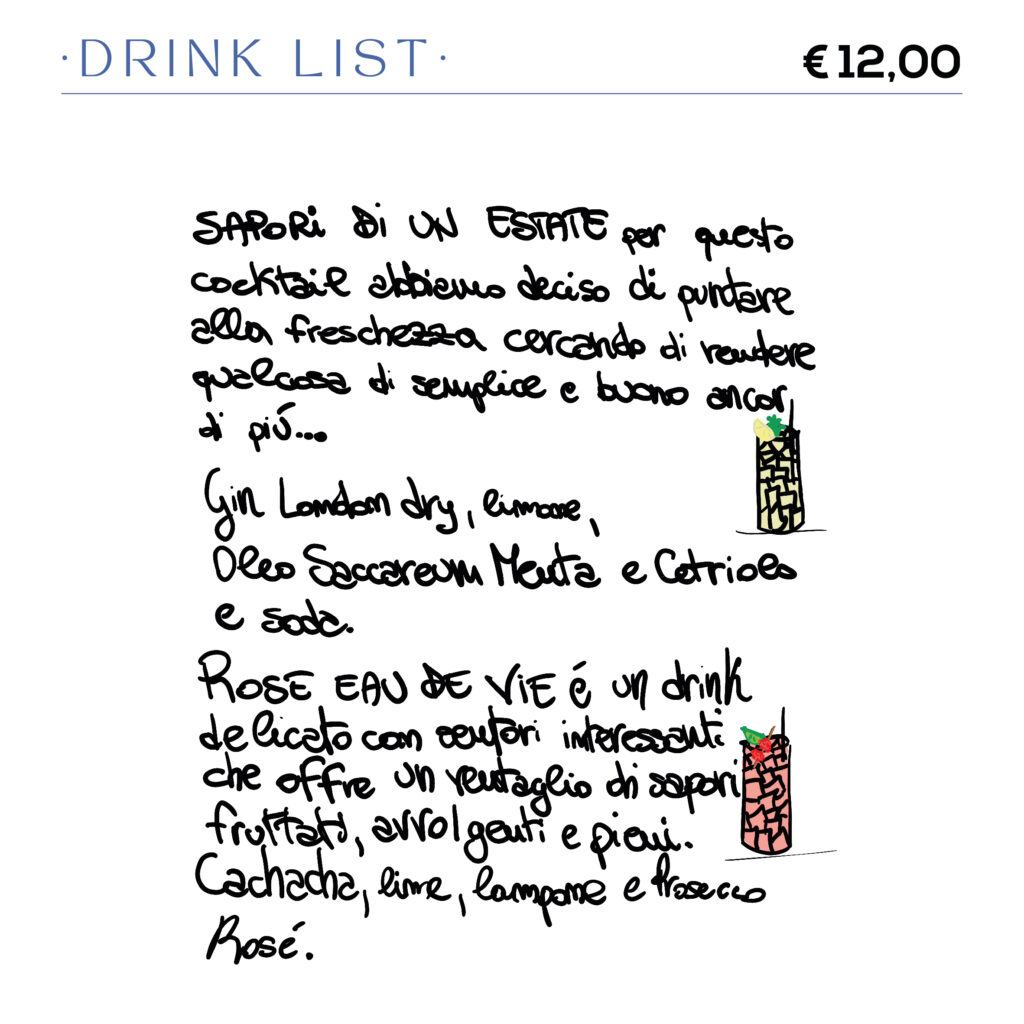 ·DRINK LIST·
€12,00
SAPORI DI UN ESTATE per questo
cocktail abbiamo deciso di puntare
alla freschezza cercando di rendere
qualcosa di semplice e buono ancor
di piú...
Gin London dry, limone,
Oleo Saccareum Menta e Cetriolo
e soda.
ROSE EAU DE VIE é un drink
delicato con sentori interessanti
che offre un ventaglio di sapori
fruttati, avvolgenti e pieni.
Cachacha, lime, lampone e Prosecco
Rosé.